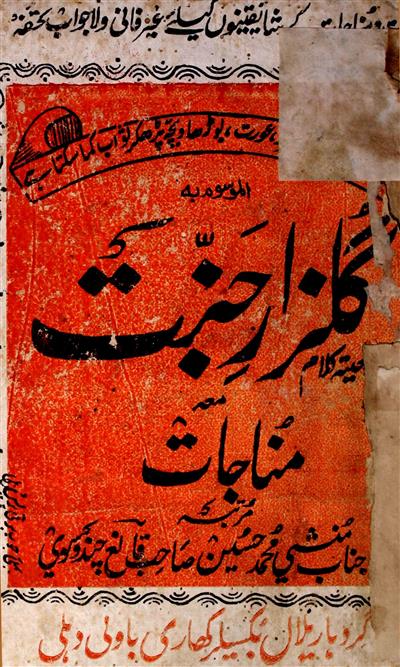 کے شائقینوں کیلئے غیر فانی ولاجواب تحفہ
عورت، بوڑھا و بچہ پڑھکر ثواب کما سکتا ہے
الموسوم بہ
گلزار جنت
حصہ کلام
معہ
مناجات
مرتبہ
جناب منشی محمد حسین صاحب قانع چندوسوی
گردھاریلال بکسیلر کھاری باولی دہلی